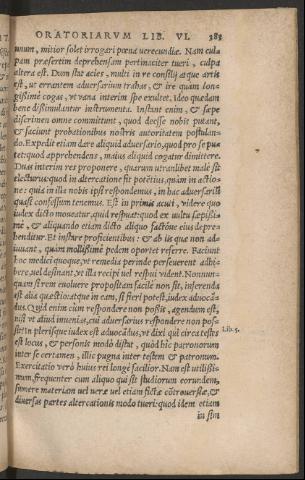 ORATORIARVM LIB. VI. 383
unum, mitior solet irrogari pœna verecundiæ. Nam culpam præsertim deprehensam pertinaciter tueri, culpa
altera est. Dum stat acies, multi in re consilij atque artis
est, ut errantem adversarium trahas, & ire quam longissimè cogas, ut vana interim spe exultet. ideo quædam
bene dissimulantur instrumenta. Instant enim, & sæpe
discrimen omne committunt, quod deesse nobis putant,
& faciunt probationibus nostris autoritatem postulando. Expedit etiam dare aliquid adversario, quod pro se putet: quod apprehendens, maius aliquid cogatur dimittere.
Duas interim res proponere, quarum utranlibet malè sit
electurus: quod in altercatione fit potentius, quàm in actione: quia in illa nobis ipsi respondemus, in hac adversariū
quasi confessum tenemus. Est in primis acuti, videre quo
iudex dicto moveatur, quid respuat: quod ex vultu sæpissimè, & aliquando etiam dicto aliquo factóve eius deprehenditur. Et instare proficientibus: & ab iis quæ non adiuvant, quàm mollissimè pedem oportet referre. Faciunt
hoc medici quoque, ut remedia perinde perseverent adhibere, vel desinant, ut illa recipi vel respui vident. Nonnunquam si rem evolvere propositam facilè non sit, inferenda
est alia quæstio: atque in eam, si fieri potest, iudex avocandus. Quid enim cùm respondere non possit, agendum est,
nisi ut aliud invenias, cui adversarius respondere non possit? in plerisque iudex est advocādus, ut dixi qui circa testes Lib. 5.
est locus, & personis modò distat, quòd hîc patronorum
inter se certamen, illic pugna inter testem & patronum.
Exercitatio verò huius rei longè facilior. Nam est utilissimum, frequenter cum aliquo qui sit studiorum eorundem,
sumere materiam vel veræ vel etiam fictæ cōtroversiæ, &
diversas partes altercationis modo tueri: quod idem etiam
in sim